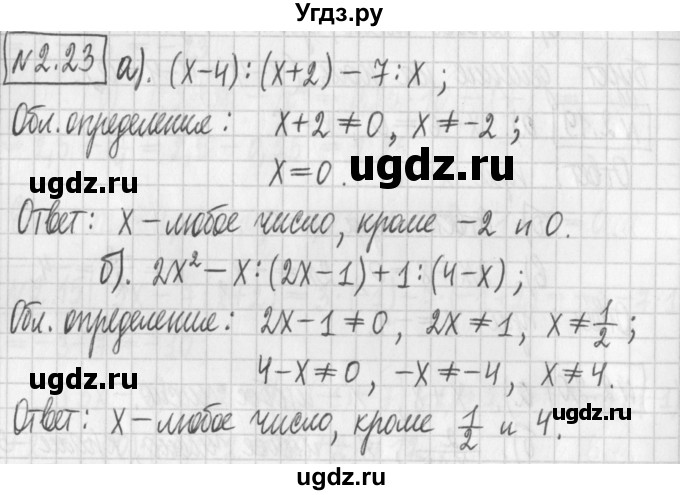 Угдз.ру
№2.23 а). (x-4):(x+2)-7:x;
Обл. определения: x+2≠0, x≠-2;
x=0.
ugdz.ru ugdz.ru
Ответ: x-любое число, кроме -2 и 0.
б). 2x²-x:(2x-1)+1:(4-x);
Обл. определения: 2x-1≠0, 2x≠1, x≠1/2;
ugdz.ru 4-x≠0, -x≠-4, x≠4.
Ответ: x-любое число, кроме 1/2 и 4.
ugdz.ru
ugdz.ru